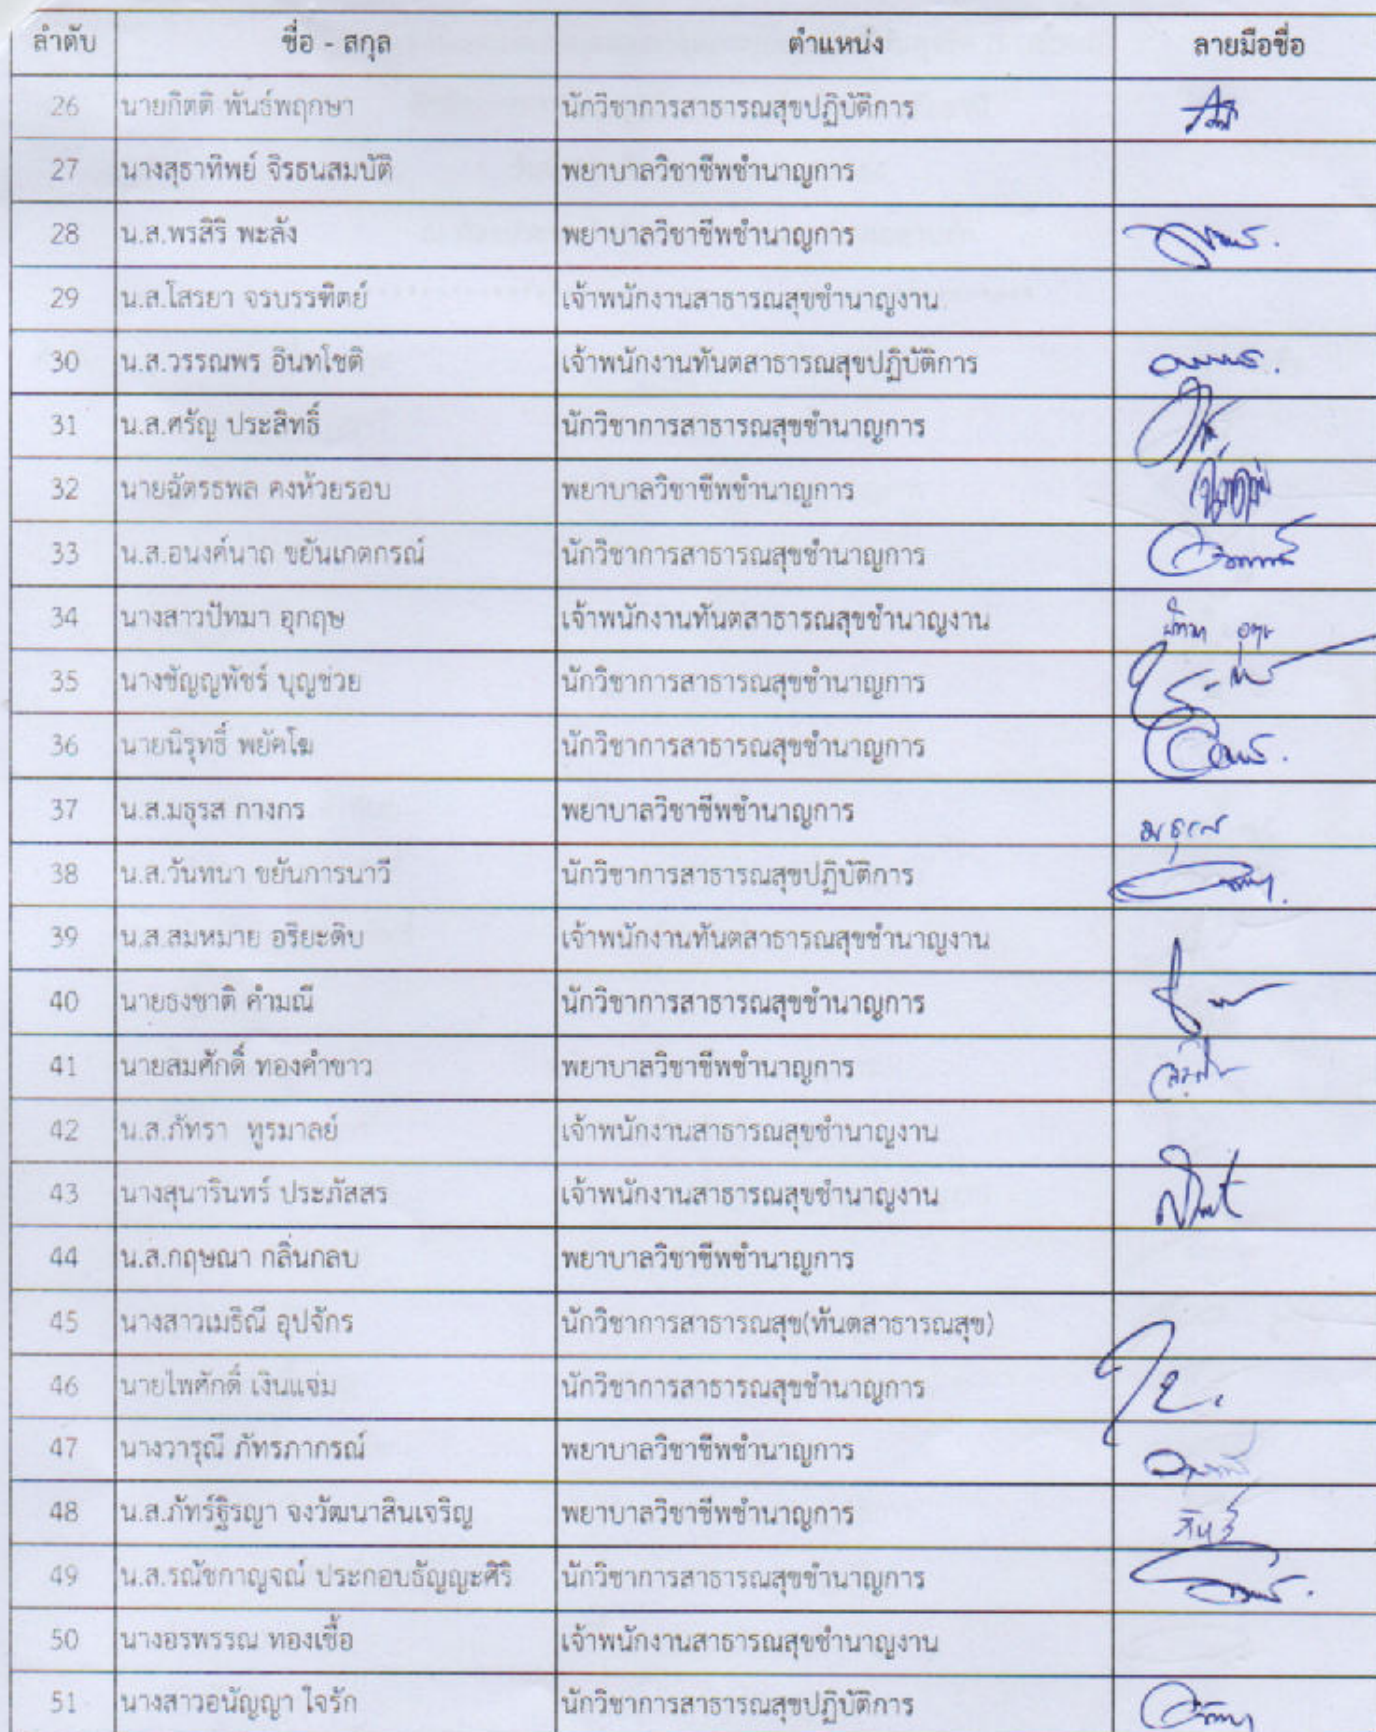 ลำดับ ชื่อ - สกุล ตำแหน่ง ลายมือชื่อ
26 นายกิตติ พันธ์พฤกษา นักวิชาการสาธารณสุขปฏิบัติการ
27 นางสุธาทิพย์ จิรธนสมบัติ พยาบาลวิชาชีพชำนาญการ
28 น.ส.พรสิริ พะลัง พยาบาลวิชาชีพชำนาญการ
29 น.ส.โสรยา จรบรรฑิตย์ เจ้าพนักงานสาธารณสุขชำนาญงาน
30 น.ส.วรรณพร อินทโชติ เจ้าพนักงานทันตสาธารณสุขปฏิบัติการ
31 น.ส.ศรัญ ประสิทธิ์ นักวิชาการสาธารณสุขชำนาญการ
32 นายฉัตรธพล คงห้วยรอบ พยาบาลวิชาชีพชำนาญการ
33 น.ส.อนงค์นาถ ขยันเกตกรณ์ นักวิชาการสาธารณสุขชำนาญการ
34 นางสาวปัทมา อุกฤษ เจ้าพนักงานทันตสาธารณสุขชำนาญงาน
35 นางชัญญพัชร์ บุญช่วย นักวิชาการสาธารณสุขชำนาญการ
36 นายนิรุทธิ์ พยัคโฆ นักวิชาการสาธารณสุขชำนาญการ
37 น.ส.มธุรส กางกร พยาบาลวิชาชีพชำนาญการ มธุรส
38 น.ส.วันทนา ขยันการนาวี นักวิชาการสาธารณสุขปฏิบัติการ
39 น.ส.สมหมาย อริยะดิบ เจ้าพนักงานทันตสาธารณสุขชำนาญงาน
40 นายธงชาติ คำมณี นักวิชาการสาธารณสุขชำนาญการ
41 นายสมศักดิ์ ทองคำขาว พยาบาลวิชาชีพชำนาญการ
42 น.ส.ภัทรา ทูรมาลย์ เจ้าพนักงานสาธารณสุขชำนาญงาน
43 นางสุนารินทร์ ประภัสสร เจ้าพนักงานสาธารณสุขชำนาญงาน
44 น.ส.กฤษณา กลิ่นกลบ พยาบาลวิชาชีพชำนาญการ
45 นางสาวเมธิณี อุปจักร นักวิชาการสาธารณสุข(ทันตสาธารณสุข)
46 นายไพศักดิ์ เงินแจ่ม นักวิชาการสาธารณสุขชำนาญการ
47 นางวารุณี ภัทรภากรณ์ พยาบาลวิชาชีพชำนาญการ
48 น.ส.ภัทร์ฐิรญา จงวัฒนาสินเจริญ พยาบาลวิชาชีพชำนาญการ
49 น.ส.รณัชกาญจณ์ ประกอบธัญญะศิริ นักวิชาการสาธารณสุขชำนาญการ
50 นางอรพรรณ ทองเชื้อ เจ้าพนักงานสาธารณสุขชำนาญงาน
51 นางสาวอนัญญา ใจรัก นักวิชาการสาธารณสุขปฏิบัติการ